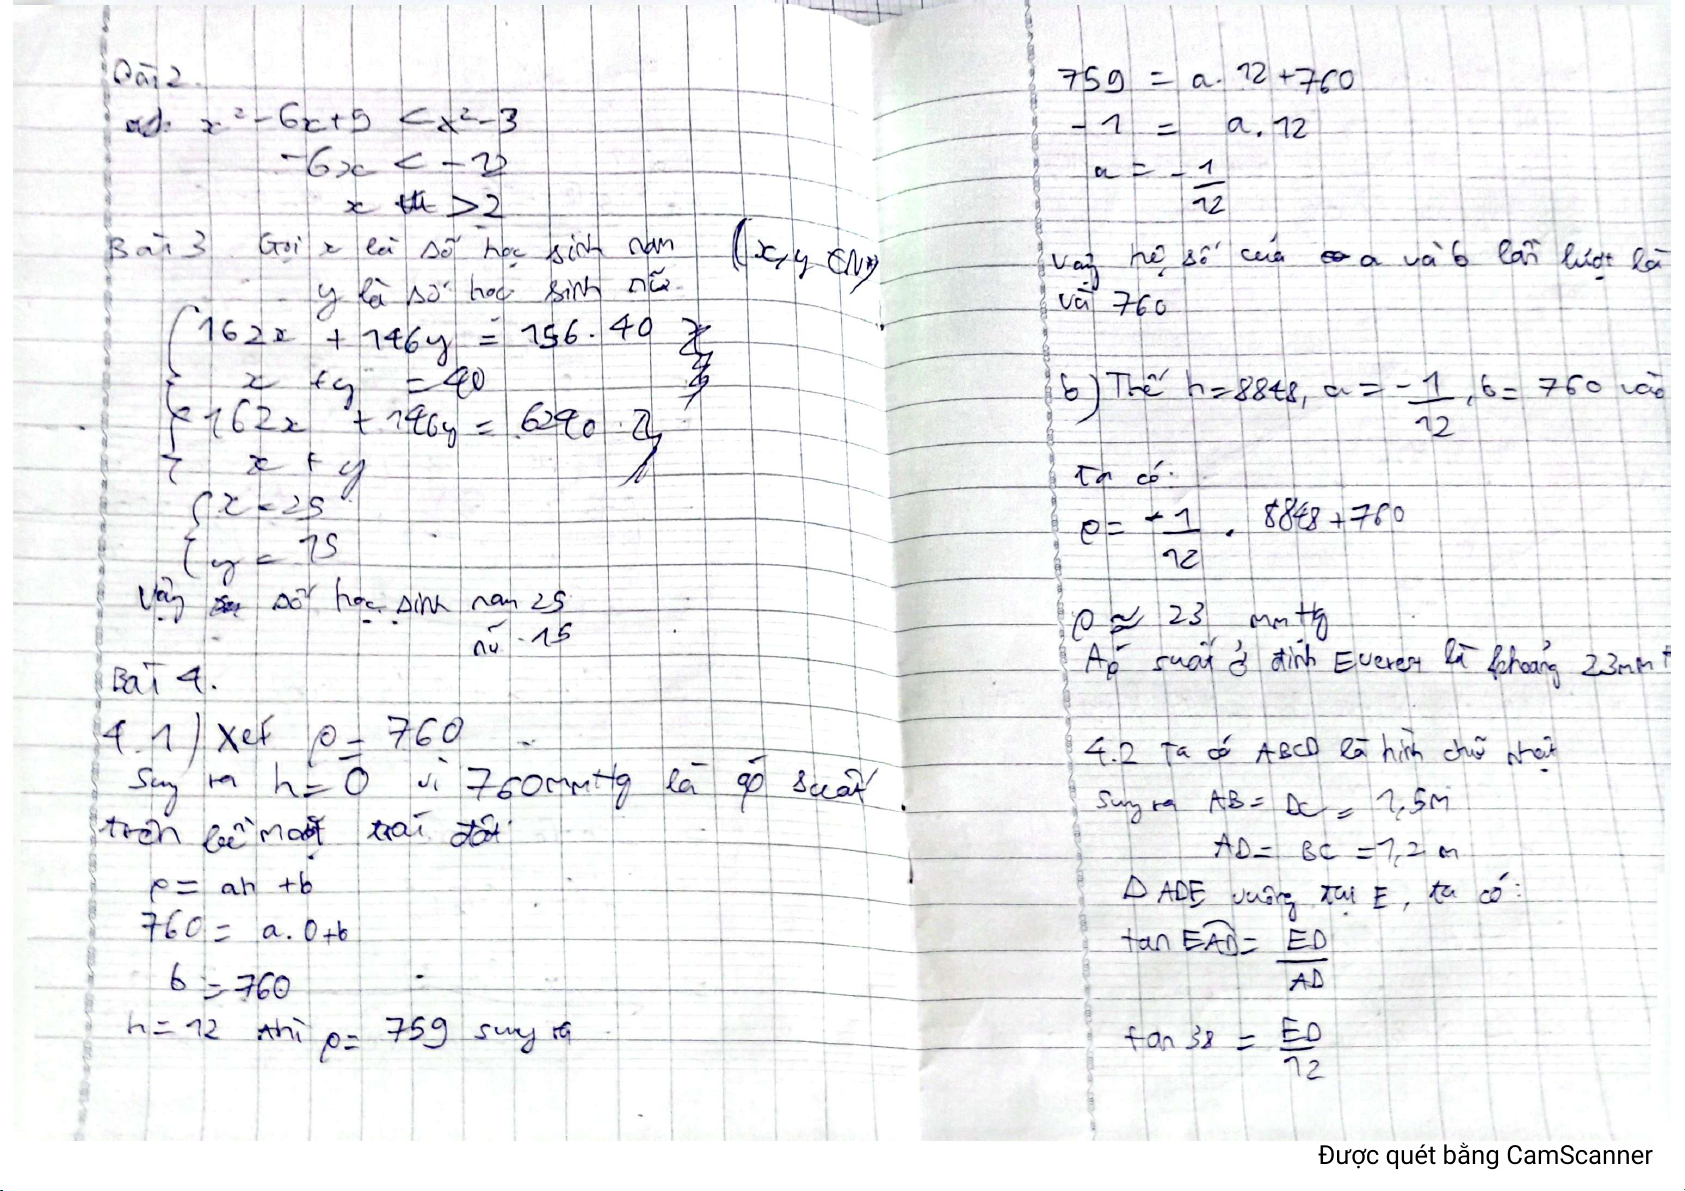 Bài 2.
x² - 6x + 9 < x² - 3
-6x < -12
x > 2
Bài 3 Gọi x là số học sinh nam (x, y ∈ N*)
y là số học sinh nữ.
162x + 146y = 156.40
x + y = 40
162x + 146y = 6240
x + y
x = 25
y = 15
Vậy số học sinh nam 25
nữ 15
Bài 4.
4.1) Xét p = 760
Suy ra h = 0 vì 760mmHg là áp suất
trên bề mặt trái đất
p = ah + b
760 = a.0 + b
b = 760
h = 12 thì p = 759 suy ra
759 = a.12 + 760
-1 = a.12
a = -1/12
Vậy hệ số của a và b lần lượt là
và 760
b) Thế h = 8848, a = -1/12, b = 760 vào
Ta có:
p = -1/12 . 8848 + 760
p ≈ 23 mmHg
Áp suất ở đỉnh Everest là khoảng 23mm
4.2 Ta có ABCD là hình chữ nhật
Suy ra AB = DC = 1,5m
AD = BC = 1,2 m
Δ ADE vuông tại E, ta có:
tan EAD = ED/AD
tan 38 = ED/12
Được quét bằng CamScanner